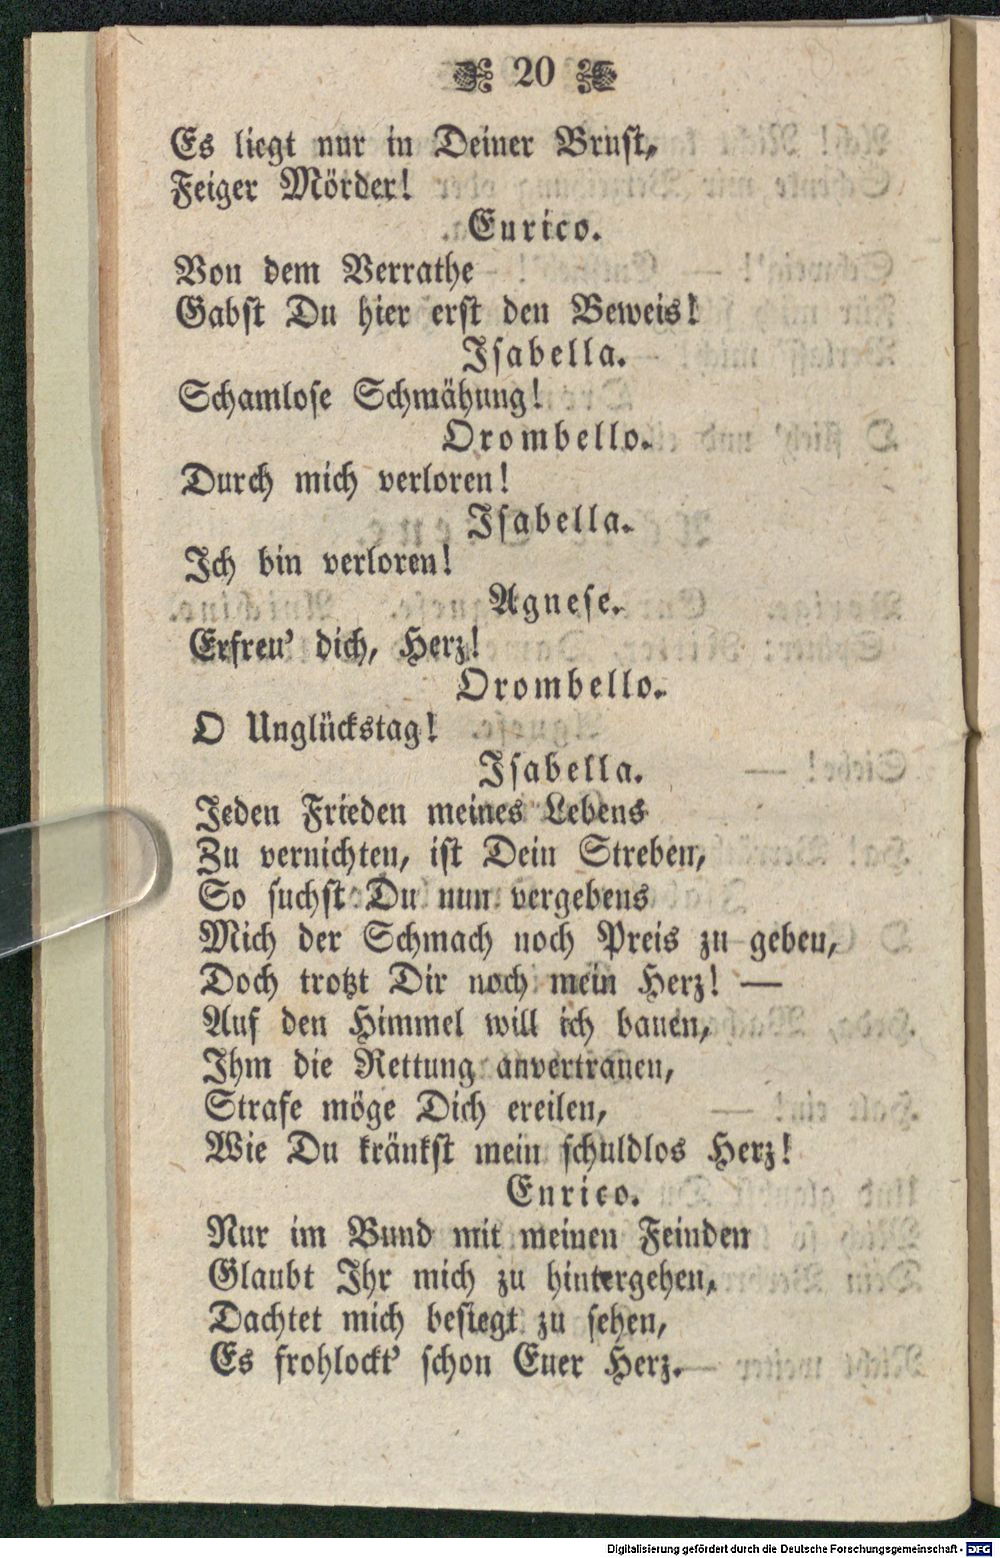 20
Es liegt nur in Deiner Brust,
Feiger Mörder!
Enrico.
Von dem Verrathe
Gabst Du hier erst den Beweis!
Isabella.
Schamlose Schmähung!
Orombello.
Durch mich verloren!
Isabella.
Ich bin verloren!
Agnese.
Erfreu' dich, Herz!
Orombello.
O Unglückstag!
Isabella.
Jeden Frieden meines Lebens
Zu vernichten, ist Dein Streben,
So suchst Du nun vergebens
Mich der Schmach noch Preis zu geben,
Doch trotzt Dir noch mein Herz! —
Auf den Himmel will ich bauen,
Ihm die Rettung anvertrauen,
Strafe möge Dich ereilen,
Wie Du kränkst mein schuldlos Herz!
Enrico.
Nur im Bund mit meinen Feinden
Glaubt Ihr mich zu hintergehen,
Dachtet mich besiegt zu sehen,
Es frohlockt' schon Euer Herz.
Digitalisierung gefördert durch die Deutsche Forschungsgemeinschaft - DFG